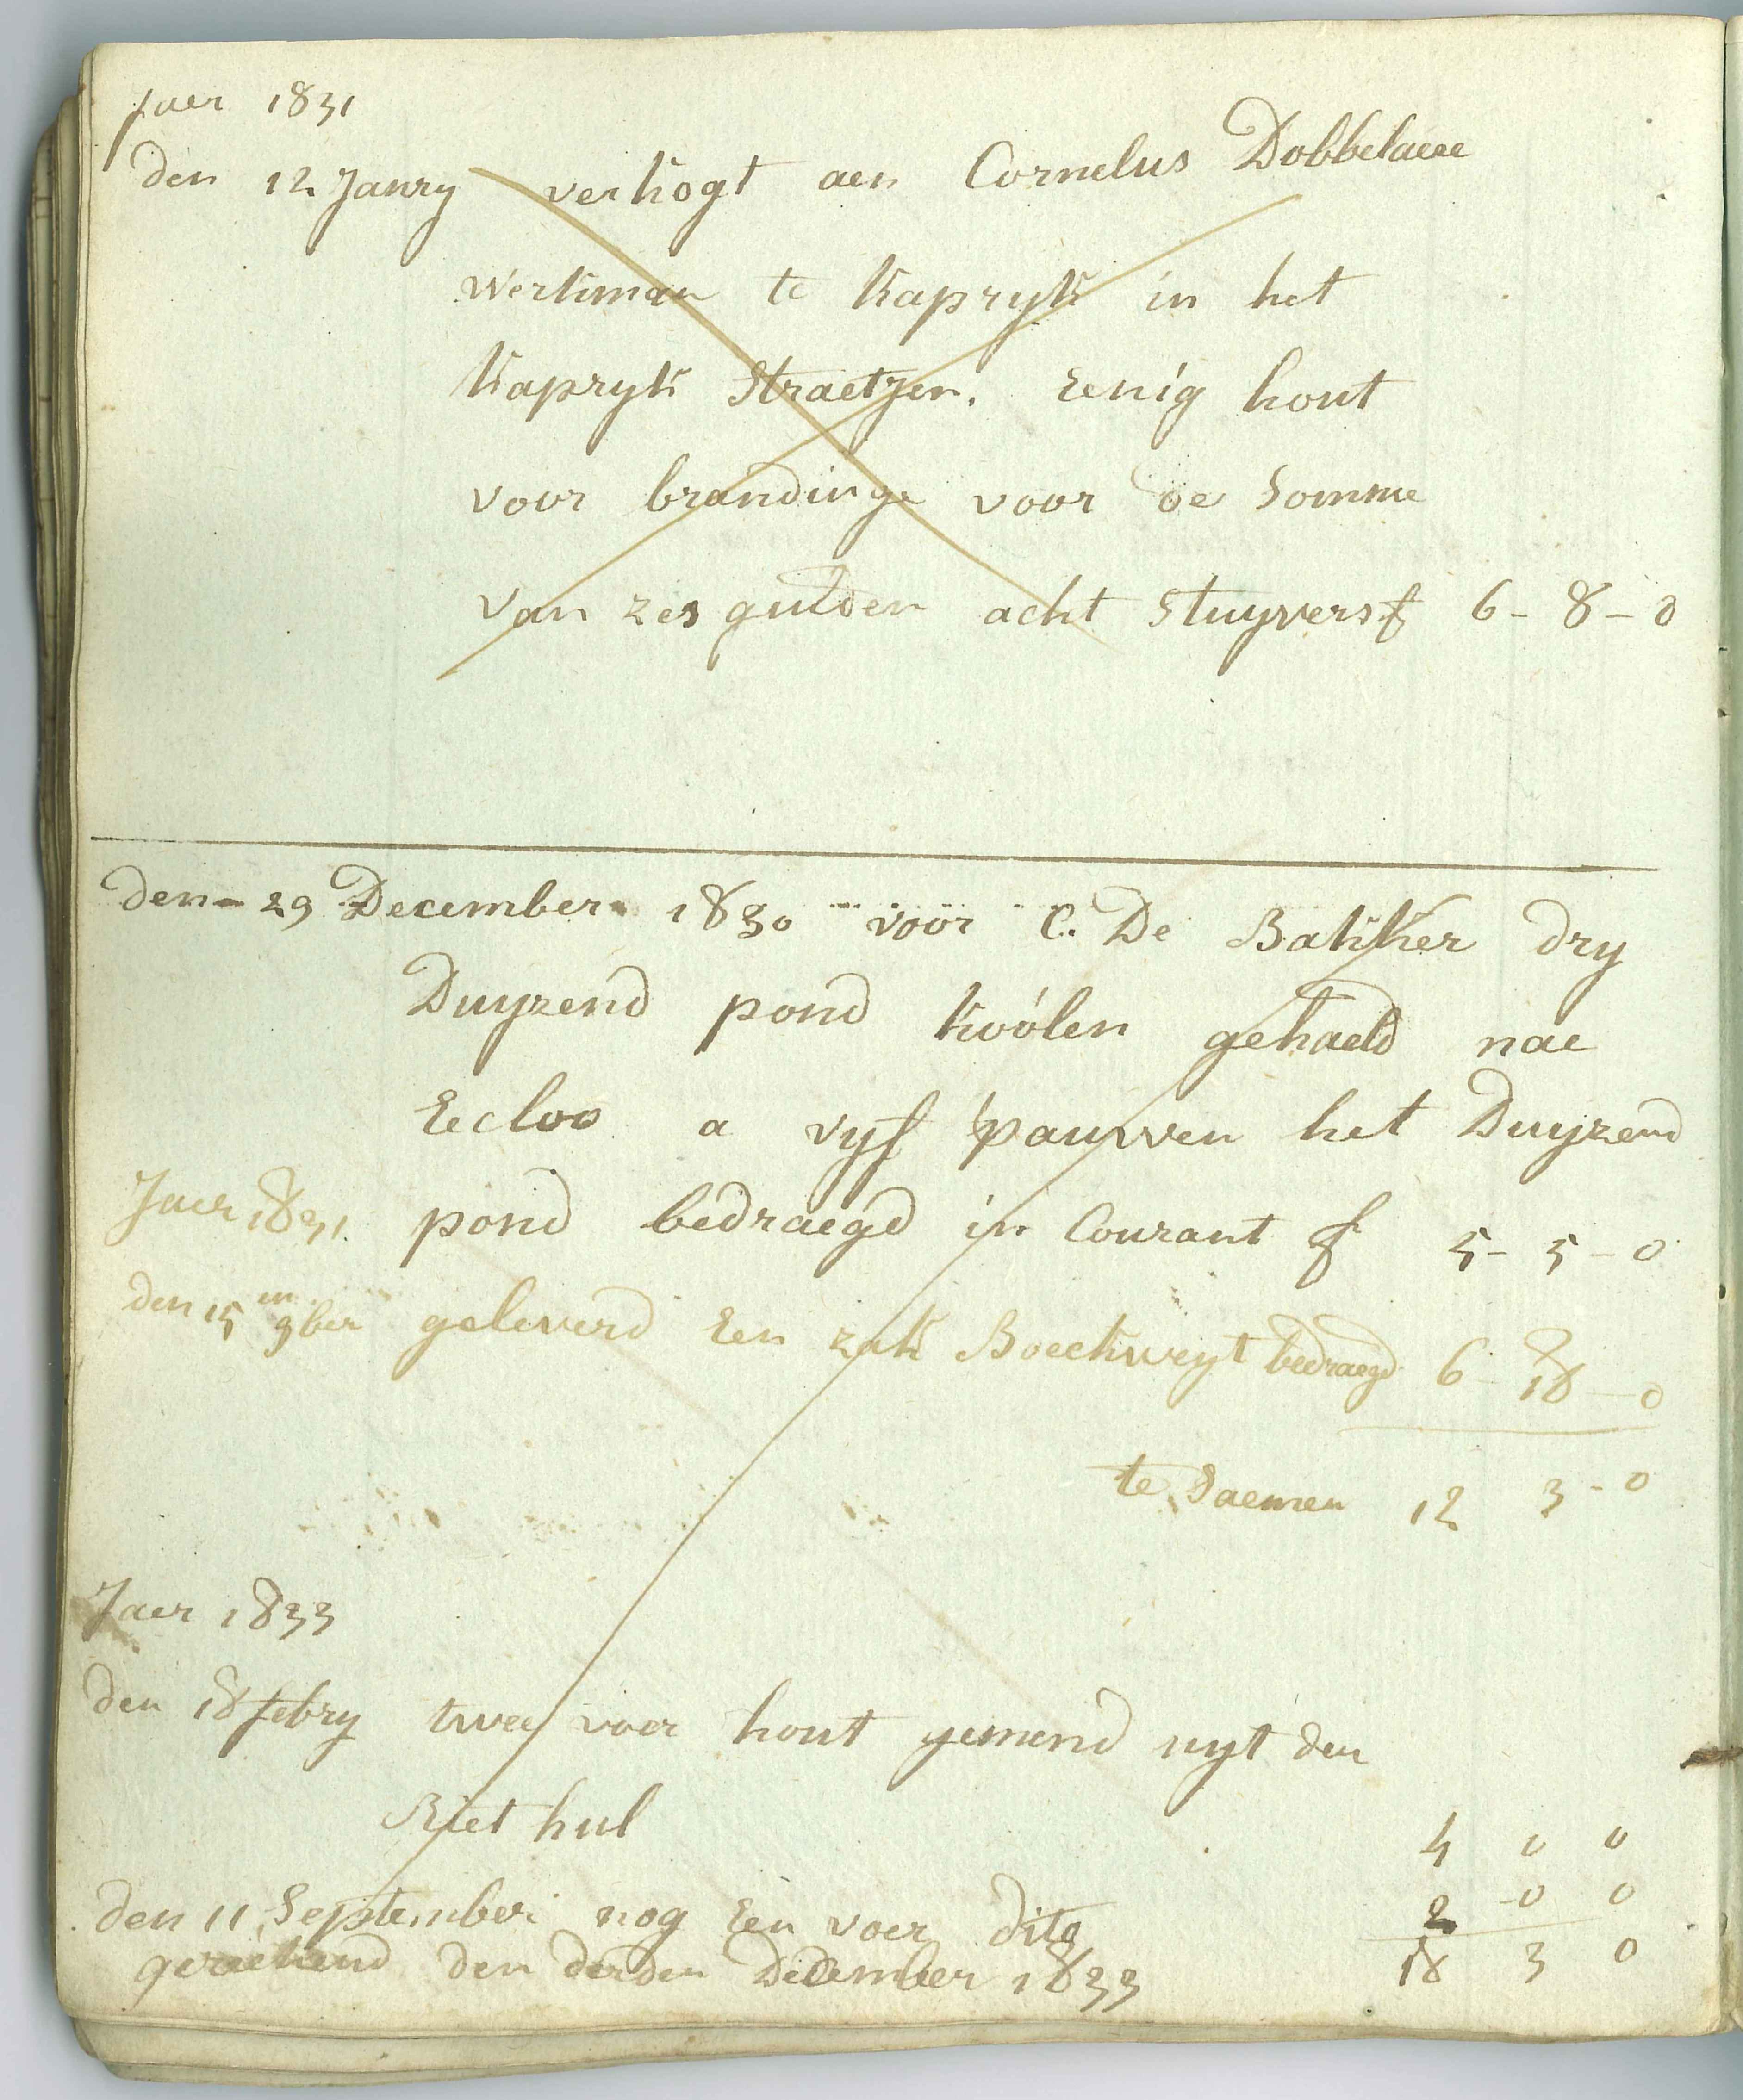 Jaer 1831
den 12 Janry verkogt aen Cornelus Dobbelaere
werkman te Kapryk in het
Kapryk Straetjen. Eenig hout
voor brandinge voor de Somme
van zes gulden acht Stuyvers f 6 - 8 - 0
den 29 December 1830 voor C. De Bakker dry
Duyzend pond koolen gehaeld nae
Eecloo a vyf pauwen het Duyzend
Jaer 1831 pond bedraegd in Courant f 5 - 5 - 0
den 15 en 9ber geleverd Een zak Boeckweyt bedraegd 6 - 18 - 0
te Saemen 12 3 - 0
Jaer 1833
den 18 febry twee voer hout gemend uyt den
Riet hul 4 0 0
den 11 September nog Een voer dito 2 - 0 0
gerekend den derden December 1833 18 3 0